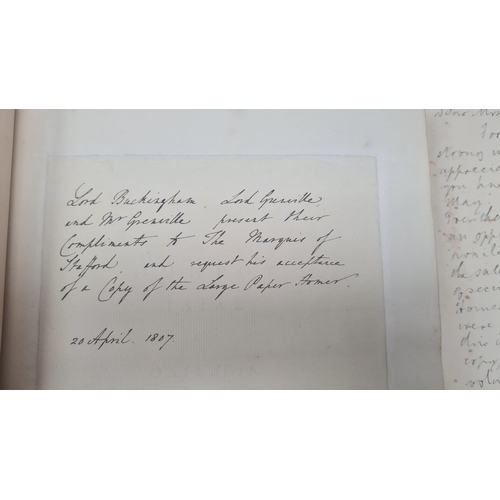 Lord Buckingham, Lord Grenville,
and Mr Grenville present their
Compliments to The Marquis of
Stafford and request his acceptance
of a Copy of the Large Paper Homer.
20 April. 1807.
strong
you
May
an opp
the sale
were
copy